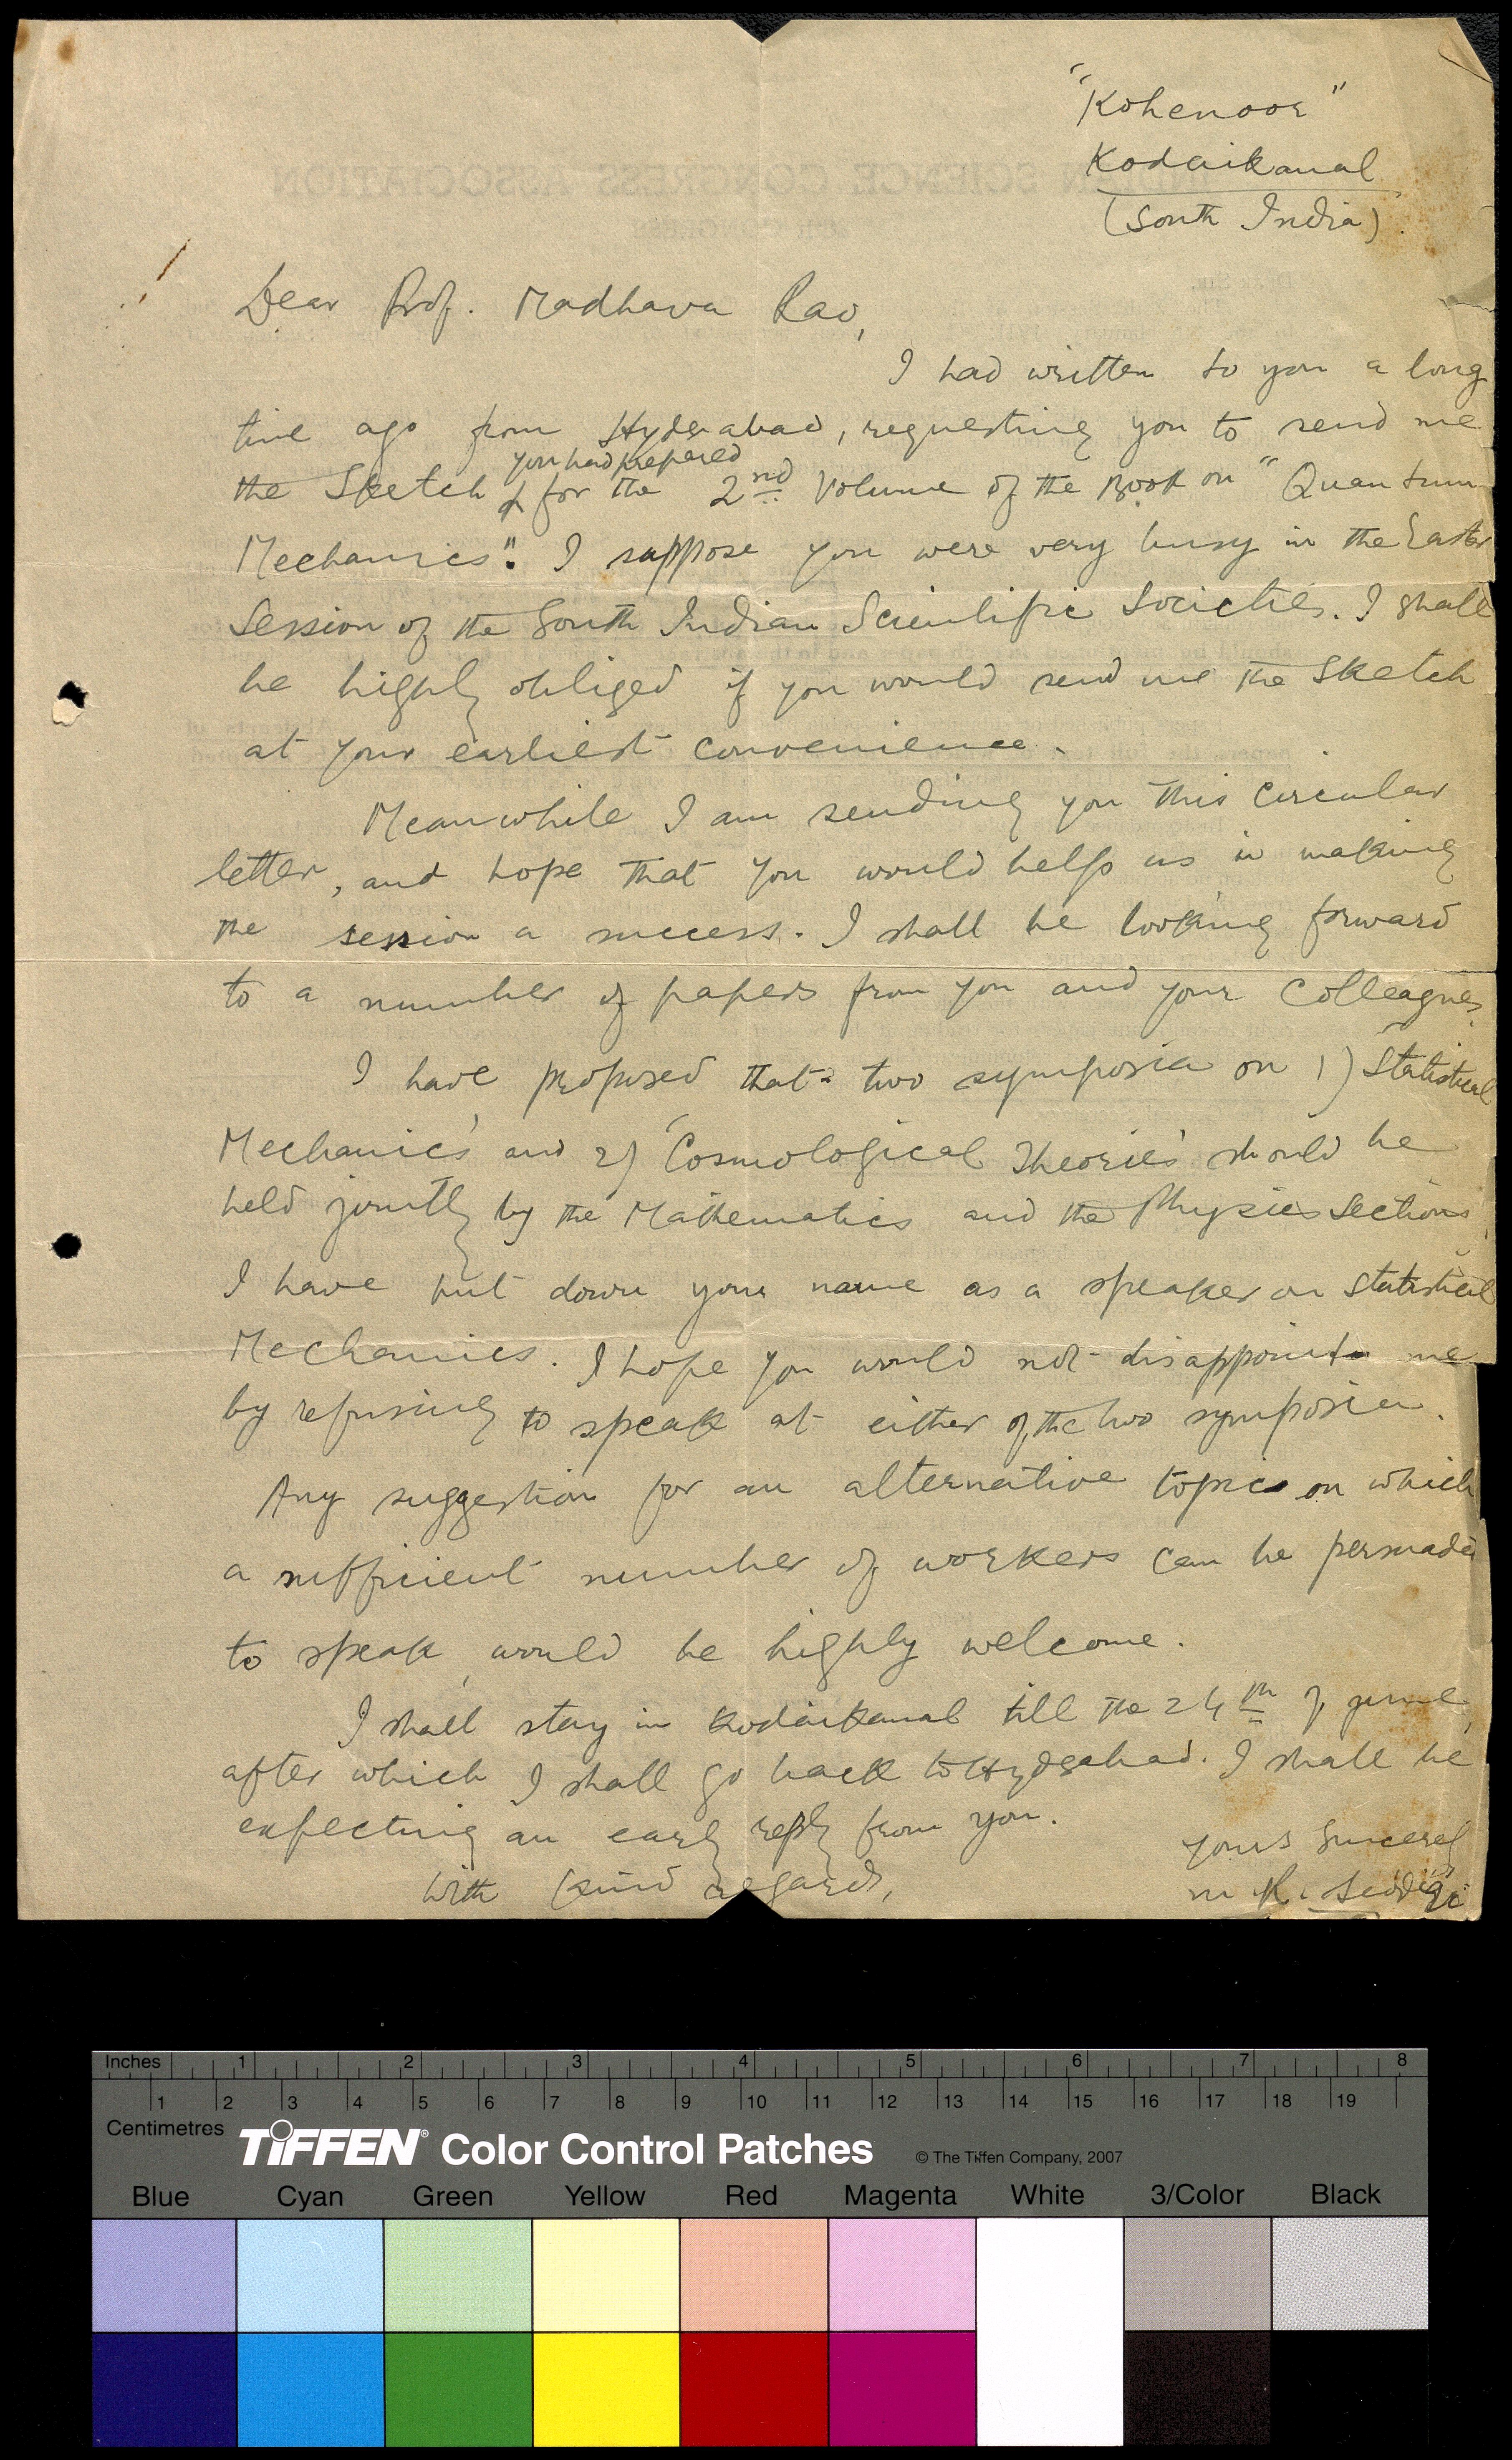 "Kohenoor"
Kodaikanal
(South India)
Dear Prof. Madhava Rao,
I had written to you a long
time ago from Hyderabad, requesting you to send me
you had prepared
the Sketch for the 2nd Volume of the Book on "Quantum
Mechanics". I suppose you were very busy in the Easter
Session of the South Indian Scientific Societies. I shall
be highly obliged if you would send me the Sketch
at your earliest convenience.
Meanwhile I am sending you this circular
letter, and hope that you would help us in making
the session a success. I shall be looking forward
to a number of papers from you and your Colleagues.
I have proposed that two symposia on 1) Statistical
Mechanics' and 2) 'Cosmological Theories' should be
held jointly by the Mathematics and the Physics Sections.
I have put down your name as a speaker on Statistical
Mechanics. I hope you would not disappoint me
by refusing to speak at either of the two symposia.
Any suggestion for an alternative topics on which
a sufficient number of workers can be persuaded
to speak, would be highly welcome.
I shall stay in Kodaikanal till the 24th of June,
after which I shall go back to Hyderabad. I shall be
expecting an early reply from you.
With kind regards,
Yours Sincerely
M. R. Siddiqi
Inches 1 2 3 4 5 6 7 8
1 2 3 4 5 6 7 8 9 10 11 12 13 14 15 16 17 18 19
Centimetres
TIFFEN® Color Control Patches © The Tiffen Company, 2007
Blue Cyan Green Yellow Red Magenta White 3/Color Black